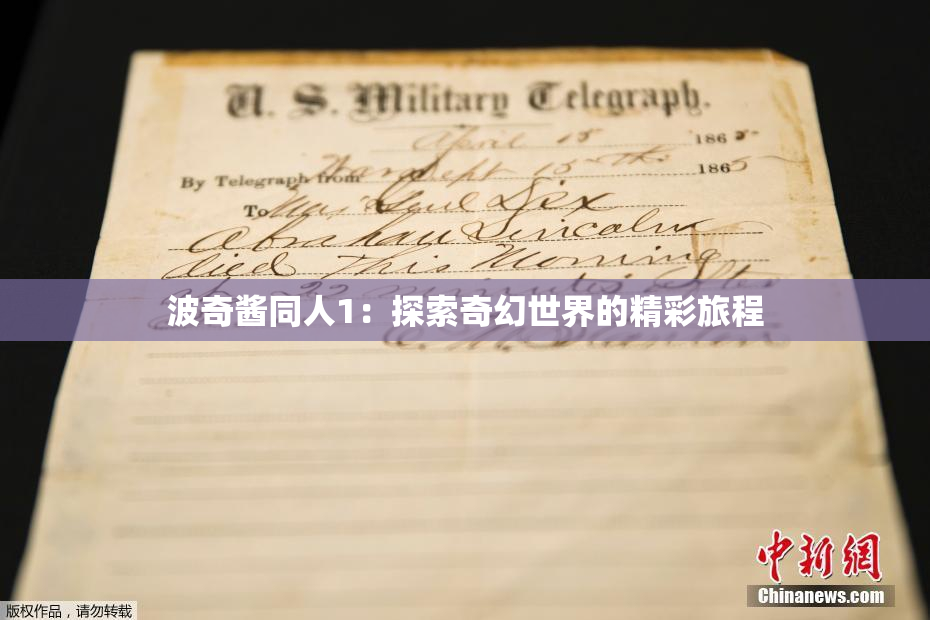 U. S. Military Telegraph.
April 15 1865
By Telegraph from War Dept 15th 1865
To Maj Genl Dix
Abraham Lincoln
died This Morning
at 22 minutes after
波奇酱同人1：探索奇幻世界的精彩旅程
E. M. Stanton
中新网
Chinanews.com
版权作品，请勿转载